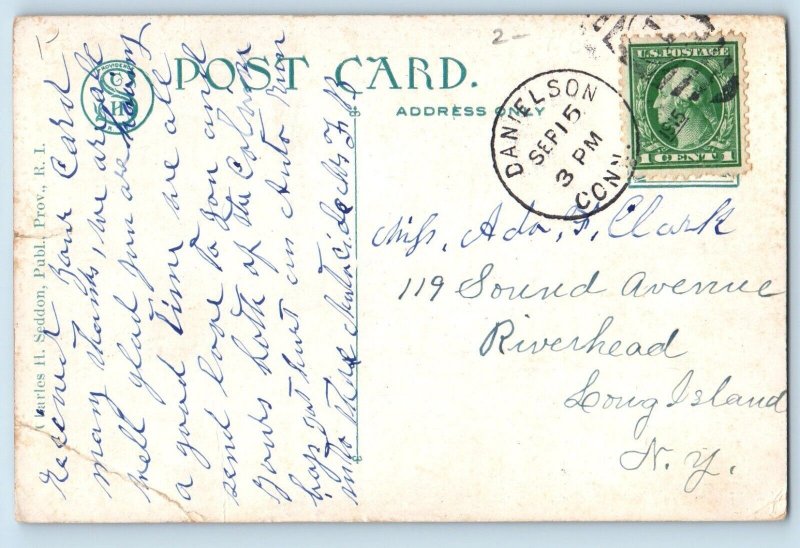 2-
POST CARD.
ADDRESS ONLY
PROVIDENCE
Charles H. Seddon, Publ., Prov., R. I.
DANIELSON
SEP 15
3 PM
CONN.
U.S. POSTAGE
1 CENT 1
received your card
many thanks, we are all
well glad you are having
a good time we all
send love to you and
yours both of the
boys got hurt in Auto Run
into
Miss, Ada, F, Clark
119 Sound Avenue
Riverhead
Long Island
N. Y.